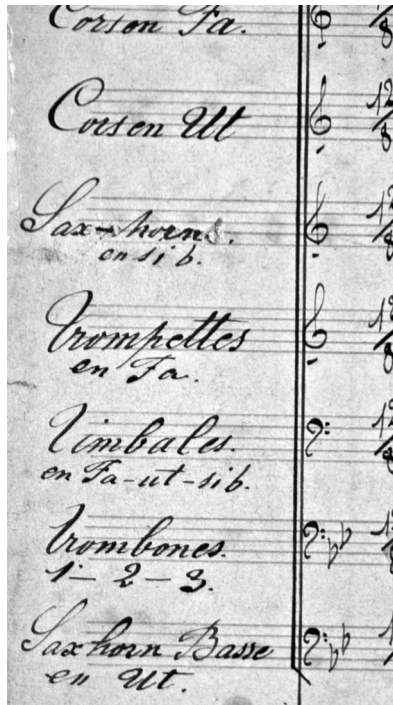 Cors en Fa.
12/8
Cors en Ut
12/8
Sax-horns.
en si b.
12/8
Trompettes
en Fa.
12/8
Timbales.
en Fa-ut-sib.
12/8
Trombones.
1 - 2 - 3.
Saxhorn Basse
en Ut.